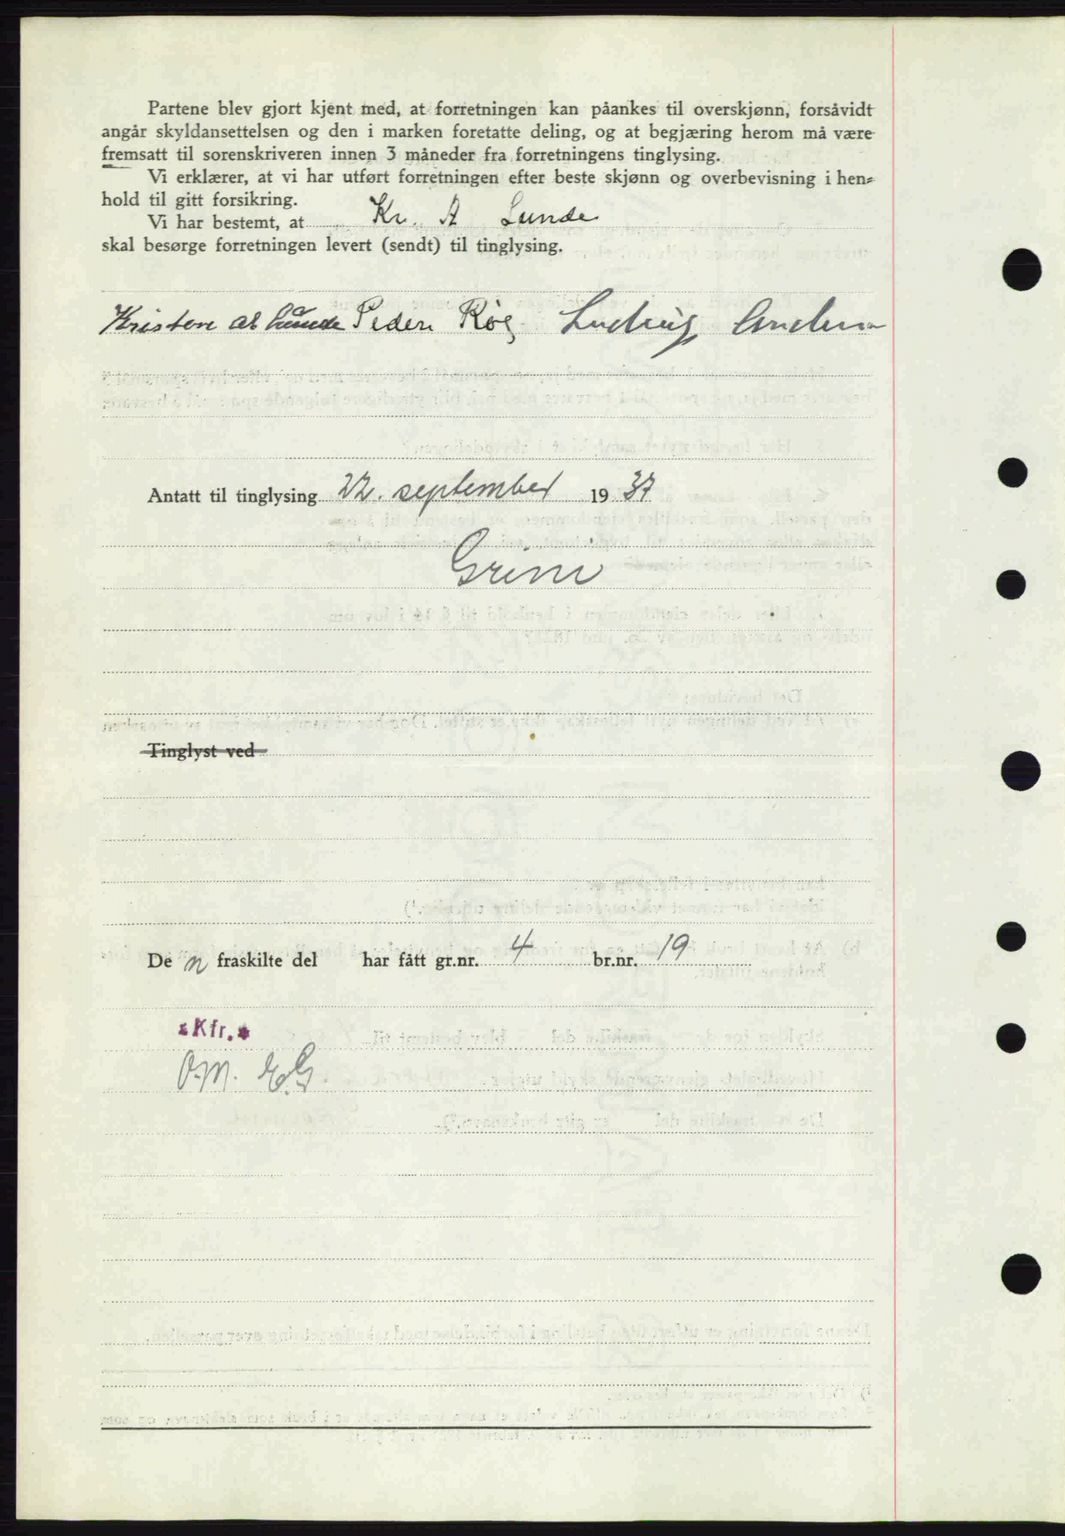 Partene blev gjort kjent med, at forretningen kan påankes til overskjønn, forsåvidt
angår skyldansettelsen og den i marken foretatte deling, og at begjæring herom må være
fremsatt til sorenskriveren innen 3 måneder fra forretningens tinglysing.
Vi erklærer, at vi har utført forretningen efter beste skjønn og overbevisning i hen=
hold til gitt forsikring.
Vi har bestemt, at Kr. A Lunde
skal besørge forretningen levert (sendt) til tinglysing.
Kristen Peder Røg Ludvig
Antatt til tinglysing 22. september 1937
Grim
Tinglyst ved
De n fraskilte del har fått gr.nr. 4 br.nr. 19
*Kfr.*
O.M. E.G